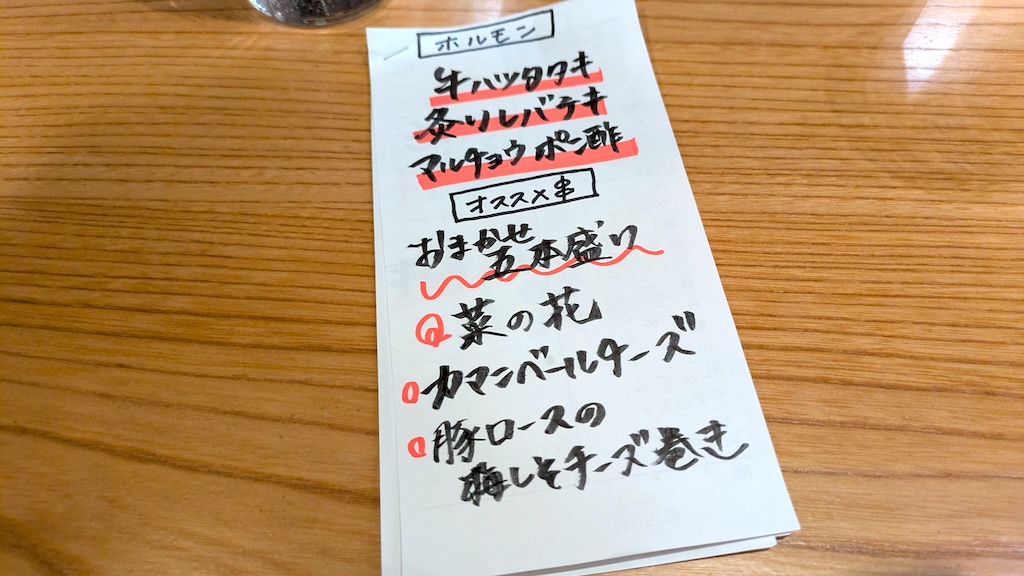 ホルモン
牛ハツタタキ
炙りレバテキ
マルチョウポン酢
オススメ串
おまかせ
五本盛り
菜の花
カマンベールチーズ
豚ロースの
梅しそチーズ巻き